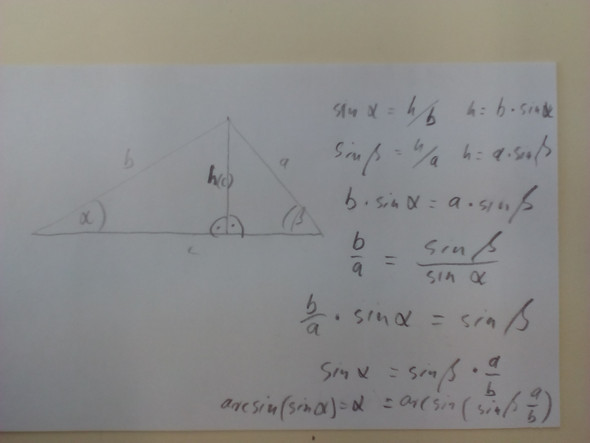 b
a
h(c)
α
β
c
sin α = h/b h = b · sin α
sin β = h/a h = a · sin β
b · sin α = a · sin β
b/a = sin β / sin α
b/a · sin α = sin β
sin α = sin β · a/b
arcsin(sin α) = α = arcsin(sin β a/b)